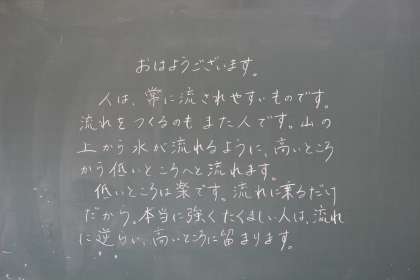 おはようございます。
人は、常に流されやすいものです。
流れをつくるのもまた人です。山の
上から水が流れるように、高いところ
から低いところへと流れます。
低いところは楽です。流れに乗るだけ
だから。本当に強くたくましい人は、流れ
に逆らい、高いところに留まります。